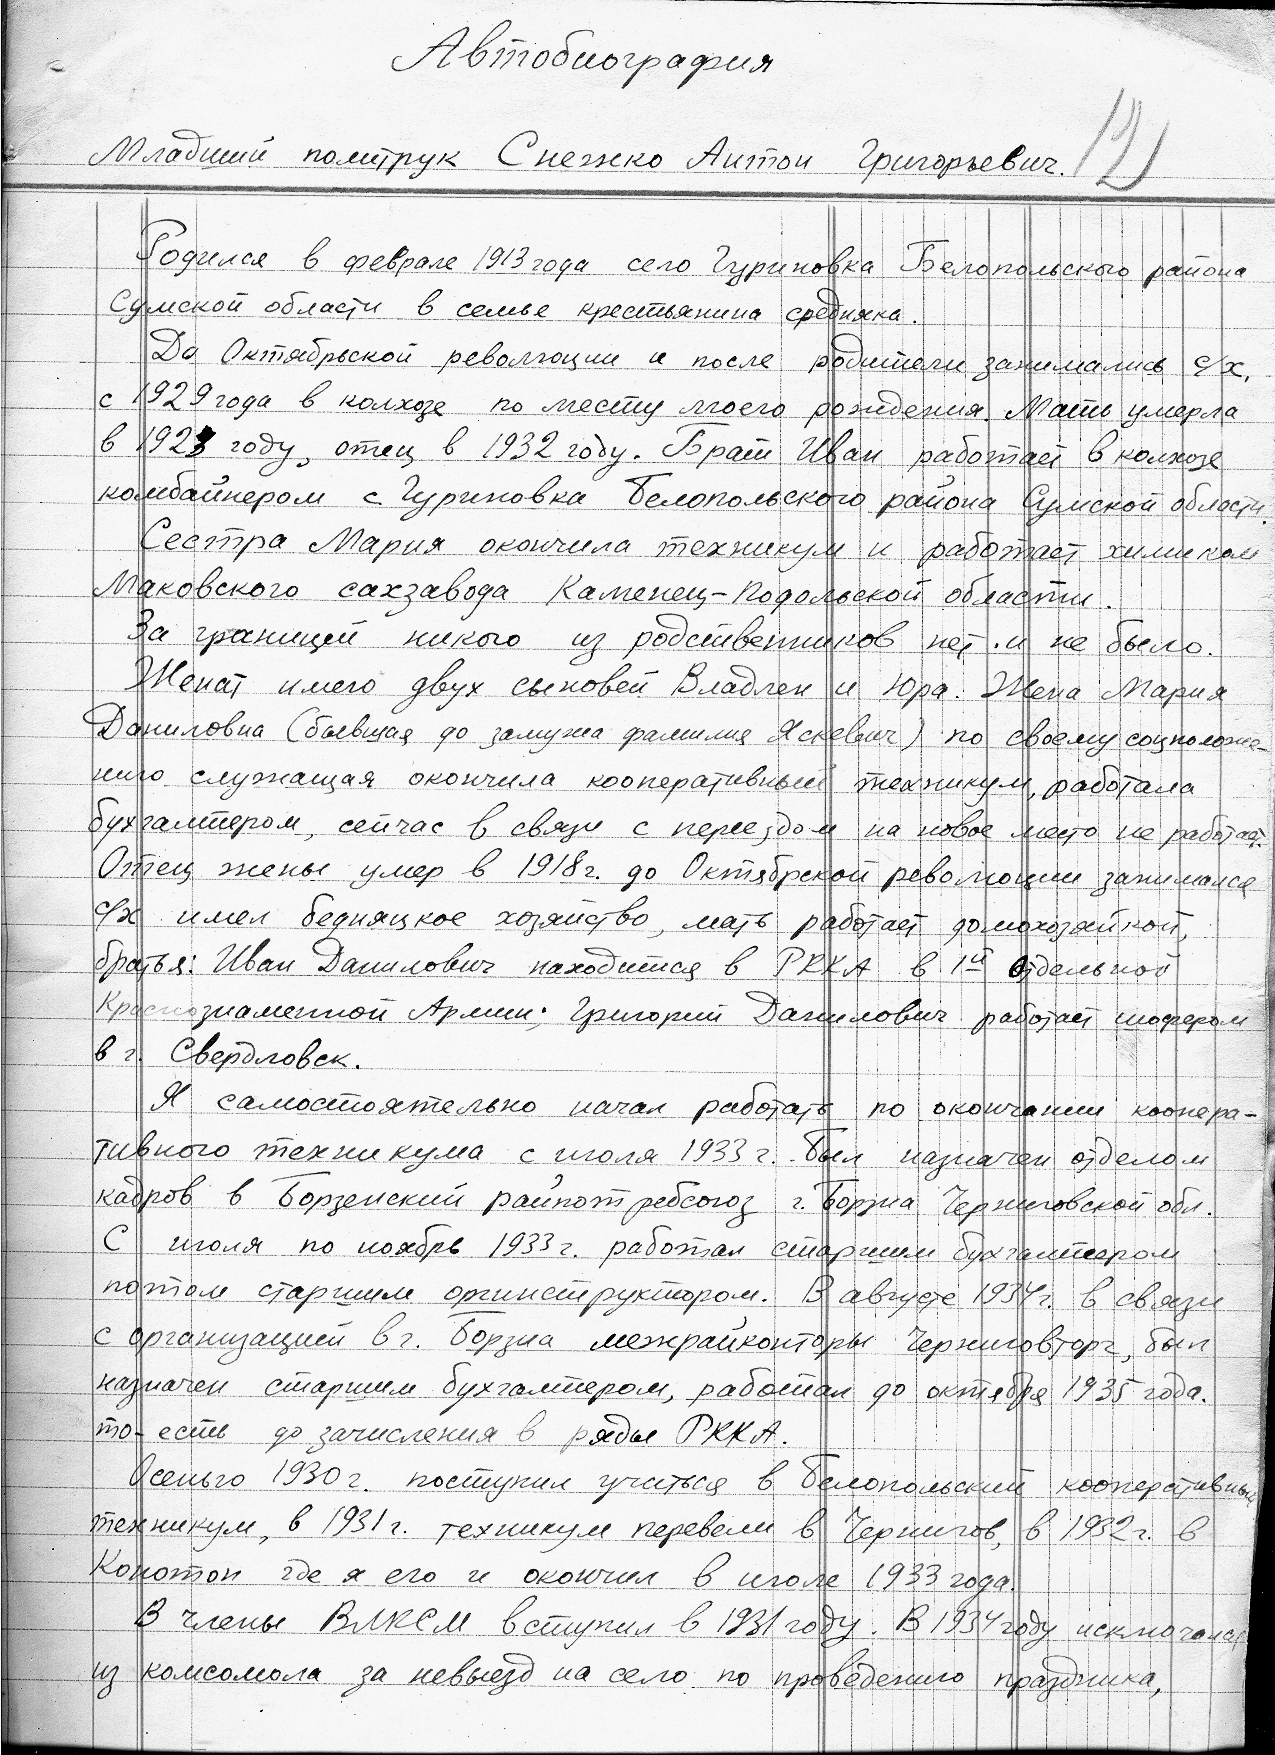 Автобиография
12
Младший политрук Снежко Антон Григорьевич.
Родился в феврале 1913 года село Гуриновка Белопольского района
Сумской области в семье крестьянина средняка.
До Октябрьской революции и после родители занимались с/х,
с 1929 года в колхозе по месту моего рождения. Мать умерла
в 1923 году, отец в 1932 году. Брат Иван работает в колхозе
комбайнером с. Гуриновка Белопольского района Сумской области.
Сестра Мария окончила техникум и работает химиком
Маковского сахзавода Каменец-Подольской области.
За границей никого из родственников нет и не было.
Женат имею двух сыновей Владлен и Юра. Жена Мария
Даниловна (бывшая до замужа фамилия Яскевич) по своему соцположе-
нию служащая окончила кооперативный техникум, работала
бухгалтером, сейчас в связи с переездом на новое место не работает.
Отец жены умер в 1918 г. до Октябрской революции занимался
с/х имел бедняцкое хозяйство, мать работает домохозяйкой,
братья: Иван Данилович находится в РККА в 1й отдельной
Краснознаменной Армии; Григорий Данилович работает шофером
в г. Свердловск.
Я самостоятельно начал работать по окончании коопера-
тивного техникума с июля 1933 г. Был назначен отделом
кадров в Борзенский райпотребсоюз г. Борзна Черниговской обл.
С июля по ноябрь 1933 г. работал старшим бухгалтером
потом старшим оргинструктором. В августе 1934 г. в связи
с организацией в г. Борзна межрайконторы Черниговторг, был
назначен старшим бухгалтером, работал до октября 1935 года.
то-есть до зачисления в ряды РККА.
Осенью 1930 г. поступил учиться в Белопольский кооперативный
техникум, в 1931 г. техникум перевели в Чернигов, в 1932 г. в
Конотоп где я его и окончил в июле 1933 года.
В члены ВЛКСМ вступил в 1931 году. В 1934 году исключался
из комсомола за невыезд на село по проведению праздника,